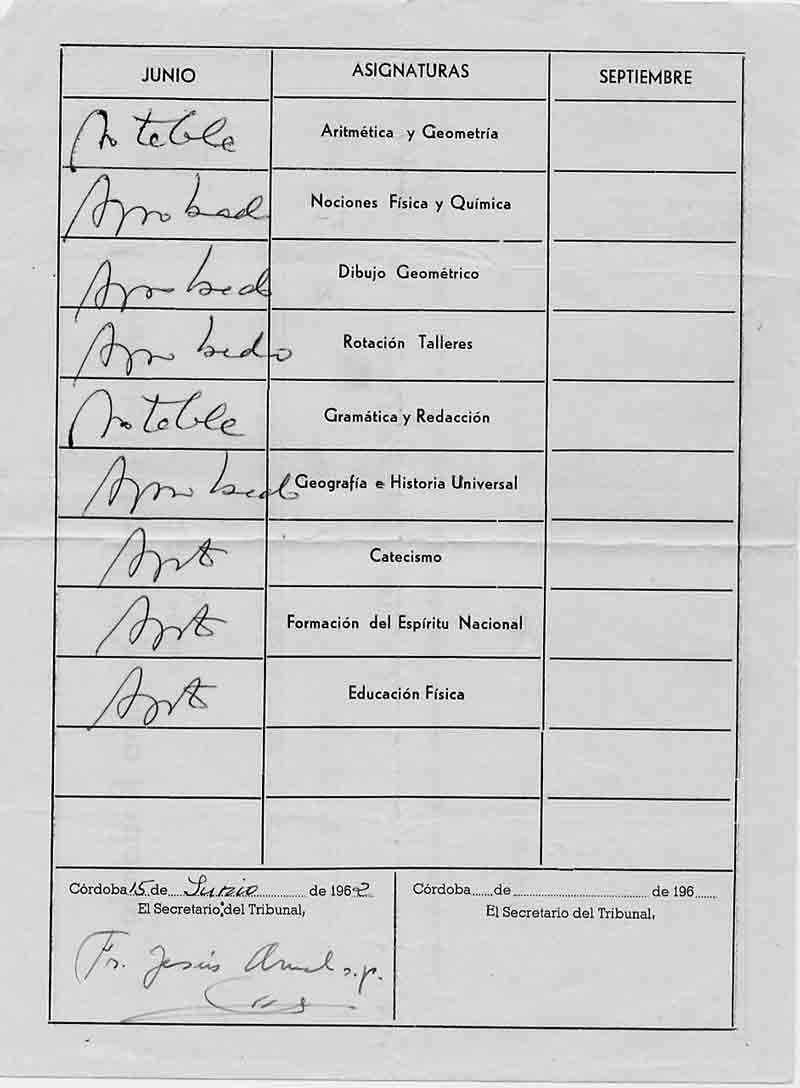 JUNIO ASIGNATURAS SEPTIEMBRE
Notable Aritmética y Geometría
Aprobad Nociones Física y Química
Aprobado Dibujo Geométrico
Aprobado Rotación Talleres
Notable Gramática y Redacción
Aprobado Geografía e Historia Universal
Apto Catecismo
Apto Formación del Espíritu Nacional
Apto Educación Física
Córdoba 15 de Junio de 1962 Córdoba de de 196
El Secretario del Tribunal, El Secretario del Tribunal,
Fr. Jesús s.p.